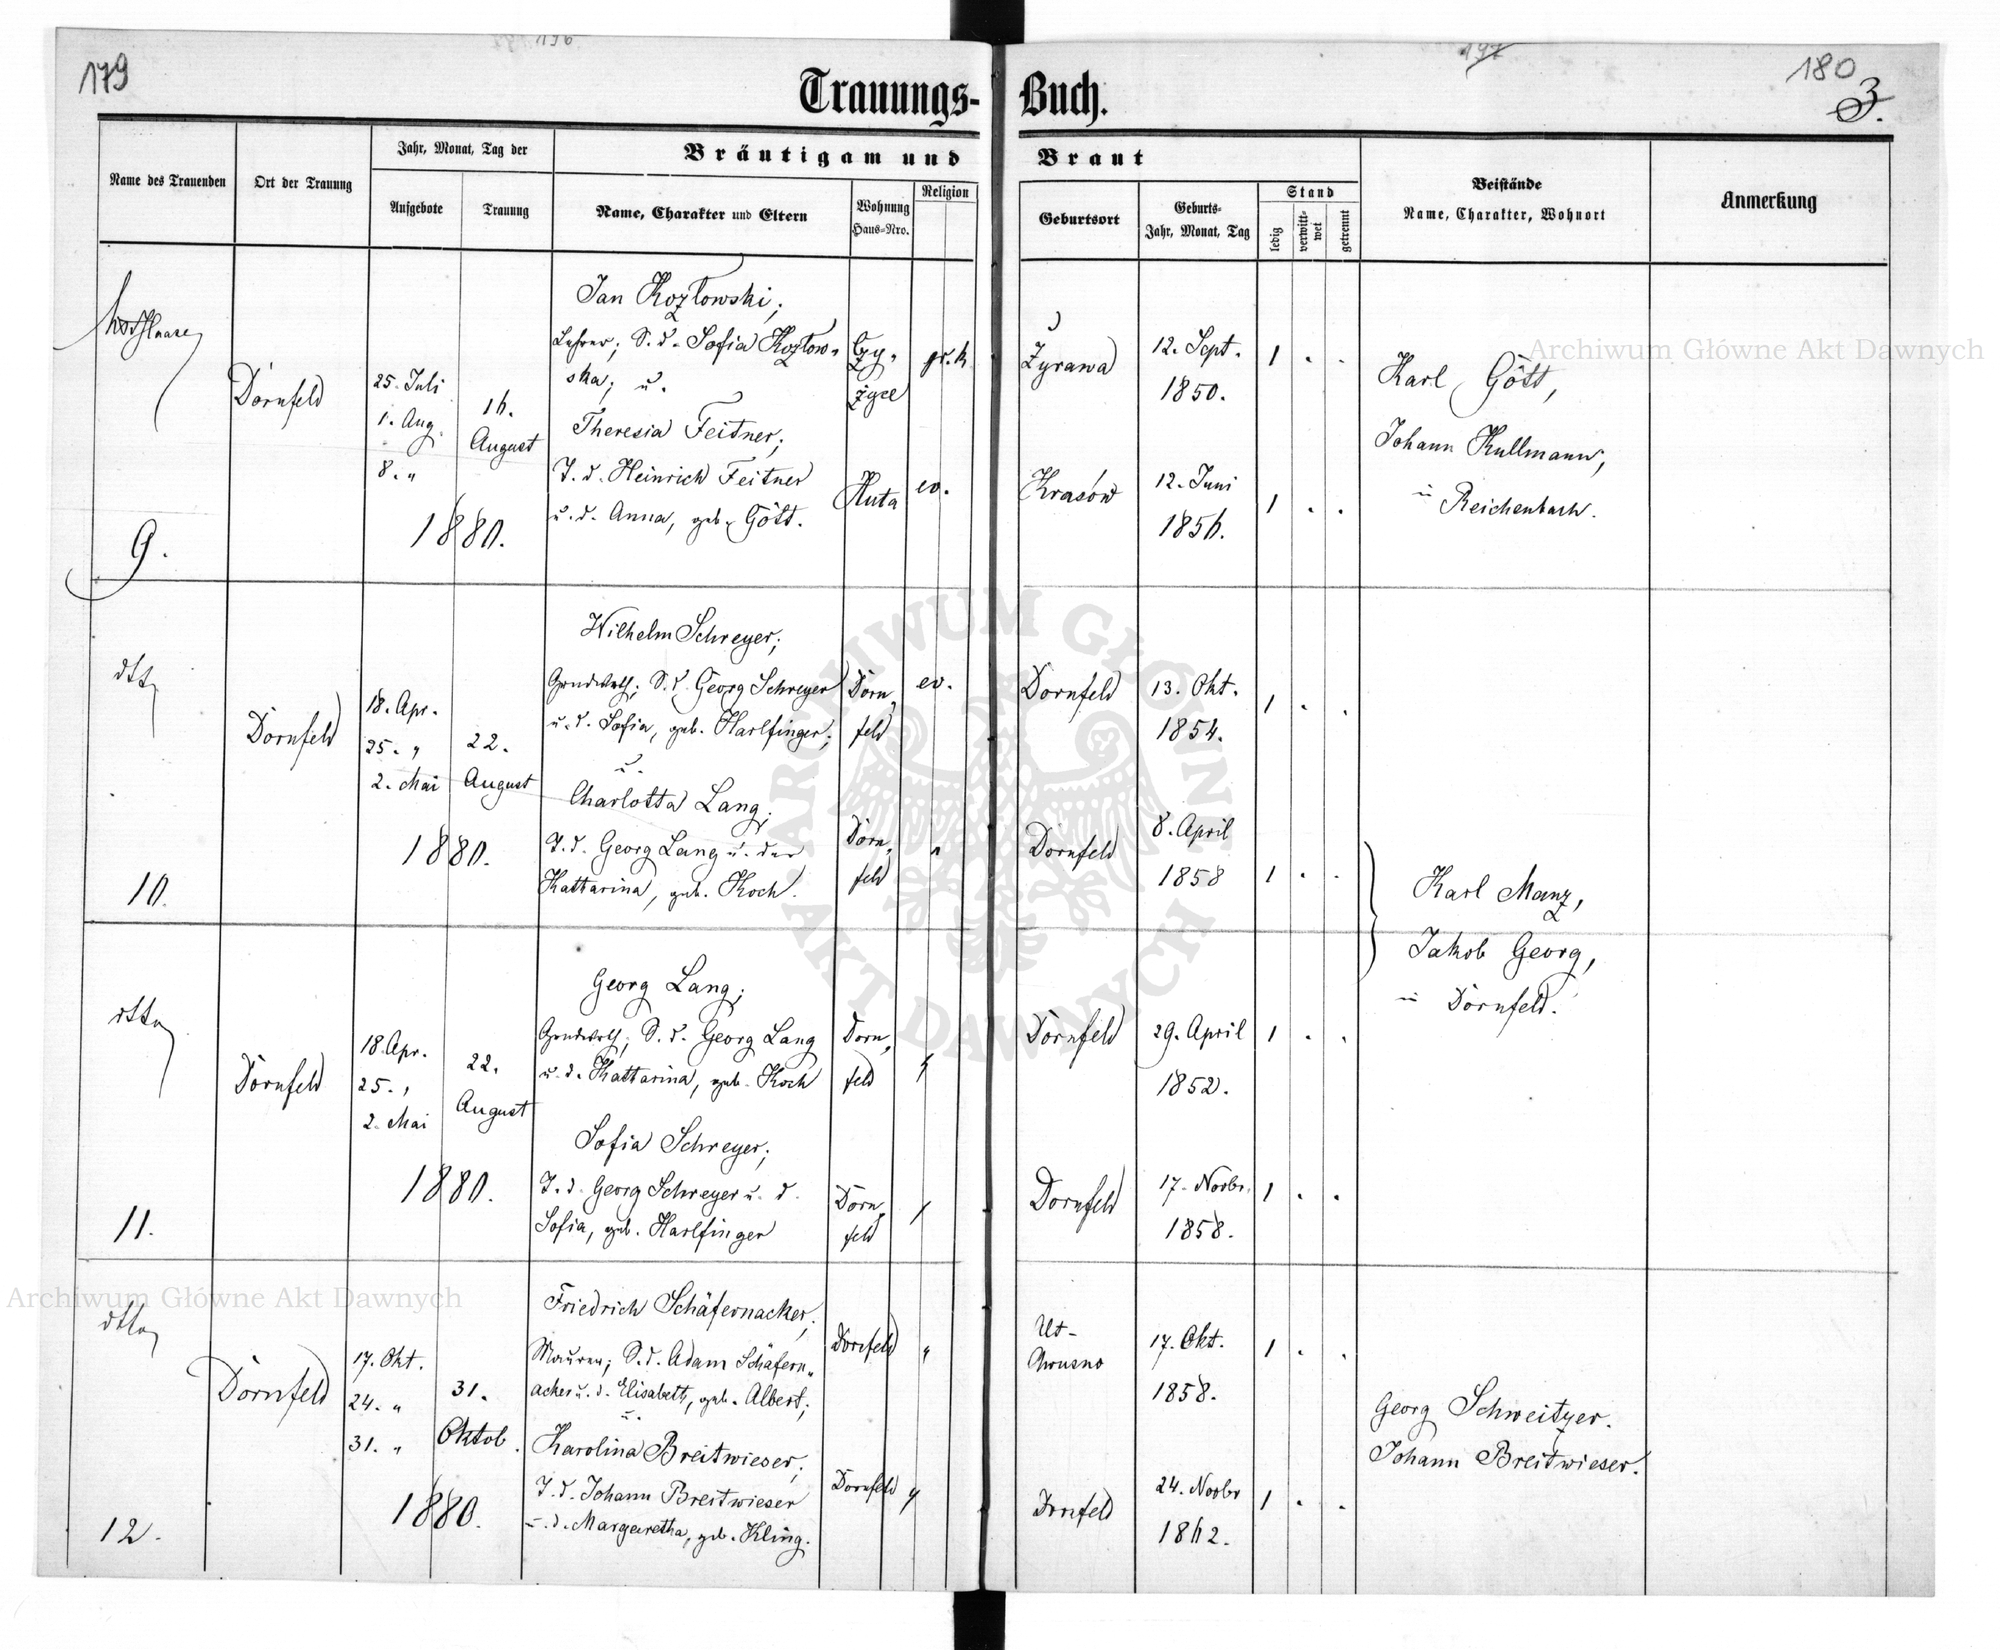 179
196
197
180
3.
Trauungs-Buch.
Name des Trauenden
Ort der Trauung
Jahr, Monat, Tag der
Aufgebote
Trauung
Bräutigam und Braut
Name, Charakter und Eltern
Wohnung
Haus-Nro.
Religion
Geburtsort
Geburts-
Jahr, Monat, Tag
Stand
ledig
verwitt-
wet
getrennt
Beistände
Name, Charakter, Wohnort
Anmerkung
9.
Dornfeld
25. Juli
1. Aug.
8. "
16.
August
1880.
Jan Kozłowski;
Lehrer; S. d. Sofia Kozłow-
ska; u.
Theresia Feitner;
T. d. Heinrich Feitner
u. d. Anna, geb. Gött.
Huta
gr. k.
ev.
Żyrawa
12. Sept.
1850.
1 . .
Krasów
12. Juni
1856.
1 . .
Karl Gött,
Johann Kullmann,
in Reichenbach.
dtto
10.
Dornfeld
18. Apr.
25. "
2. Mai
22.
August
1880.
Wilhelm Schreyer;
Grundwrth; S. d. Georg Schreyer
u. d. Sofia, geb. Harlfinger;
u.
Charlotta Lang;
T. d. Georg Lang u. der
Katharina, geb. Koch.
Dorn-
feld
Dorn-
feld
ev.
"
Dornfeld
13. Okt.
1854.
1 . .
Dornfeld
8. April
1858
1 . .
Karl Manz,
Jakob Georg,
in Dornfeld.
dtto
11.
Dornfeld
18. Apr.
25. "
2. Mai
22.
August
1880.
Georg Lang;
Grundwrth; S. d. Georg Lang
u. d. Katharina, geb. Koch
Sofia Schreyer;
T. d. Georg Schreyer u. d.
Sofia, geb. Harlfinger
Dorn-
feld
Dorn-
feld
Dornfeld
29. April
1852.
1 . .
Dornfeld
17. Novbr.
1858.
1 . .
dtto
12.
Dornfeld
17. Okt.
24. "
31. "
31.
Oktob.
1880.
Friedrich Schäfernacker;
Maurer; S. d. Adam Schäfern-
acker u. d. Elisabeth, geb. Albert;
u.
Karolina Breitwieser;
T. d. Johann Breitwieser
u. d. Margaretha, geb. Kling.
Dornfeld
Dornfeld
17. Okt.
1858.
1 . .
Dornfeld
24. Novbr
1862.
1 . .
Georg Schweitzer.
Johann Breitwieser.
Archiwum Główne Akt Dawnych
Archiwum Główne Akt Dawnych
ARCHIWUM GŁÓWNE AKT DAWNYCH